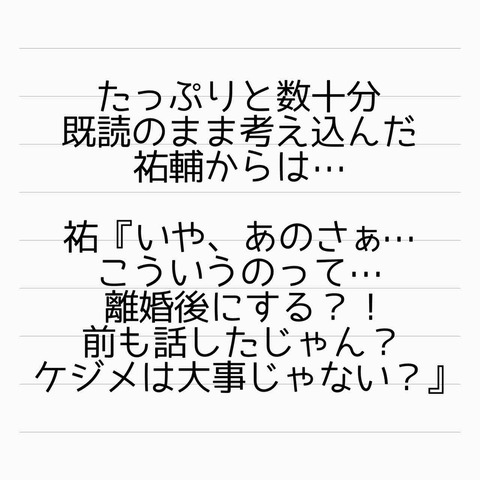 たっぷりと数十分
既読のまま考え込んだ
祐輔からは…
祐『いや、あのさぁ…
こういうのって…
離婚後にする？！
前も話したじゃん？
ケジメは大事じゃない？』